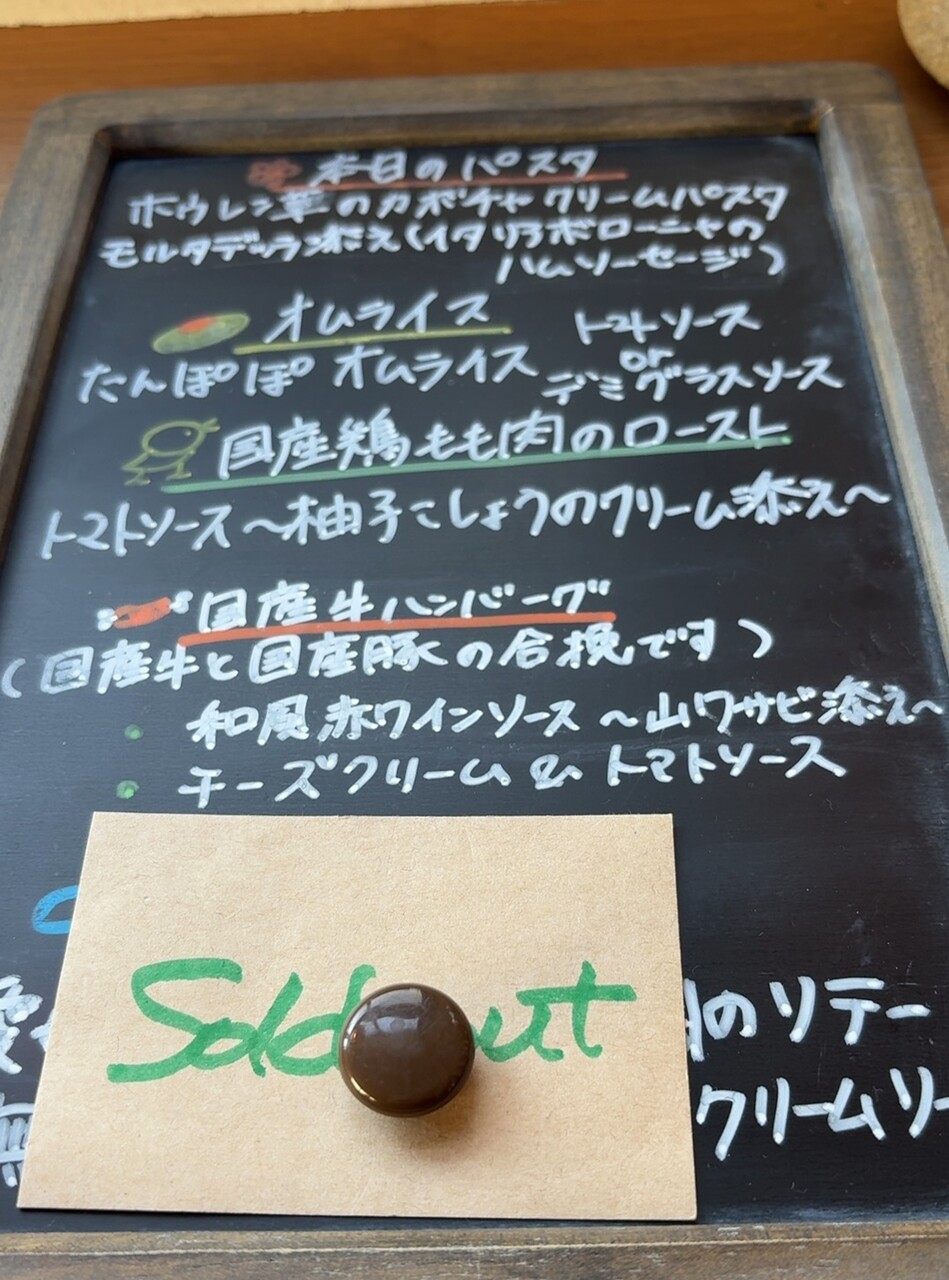 本日のパスタ
ホウレン草のカボチャクリームパスタ
モルタデッラ添え(イタリアボローニャの
ハムソーセージ)
オムライス
トマトソース
or
たんぽぽオムライス デミグラスソース
国産鶏もも肉のロースト
トマトソース〜柚子こしょうのクリーム添え〜
国産牛ハンバーグ
(国産牛と国産豚の合挽です)
・和風赤ワインソース〜山ワサビ添え〜
・チーズクリーム&トマトソース
Sold out
のソテー
クリームソー